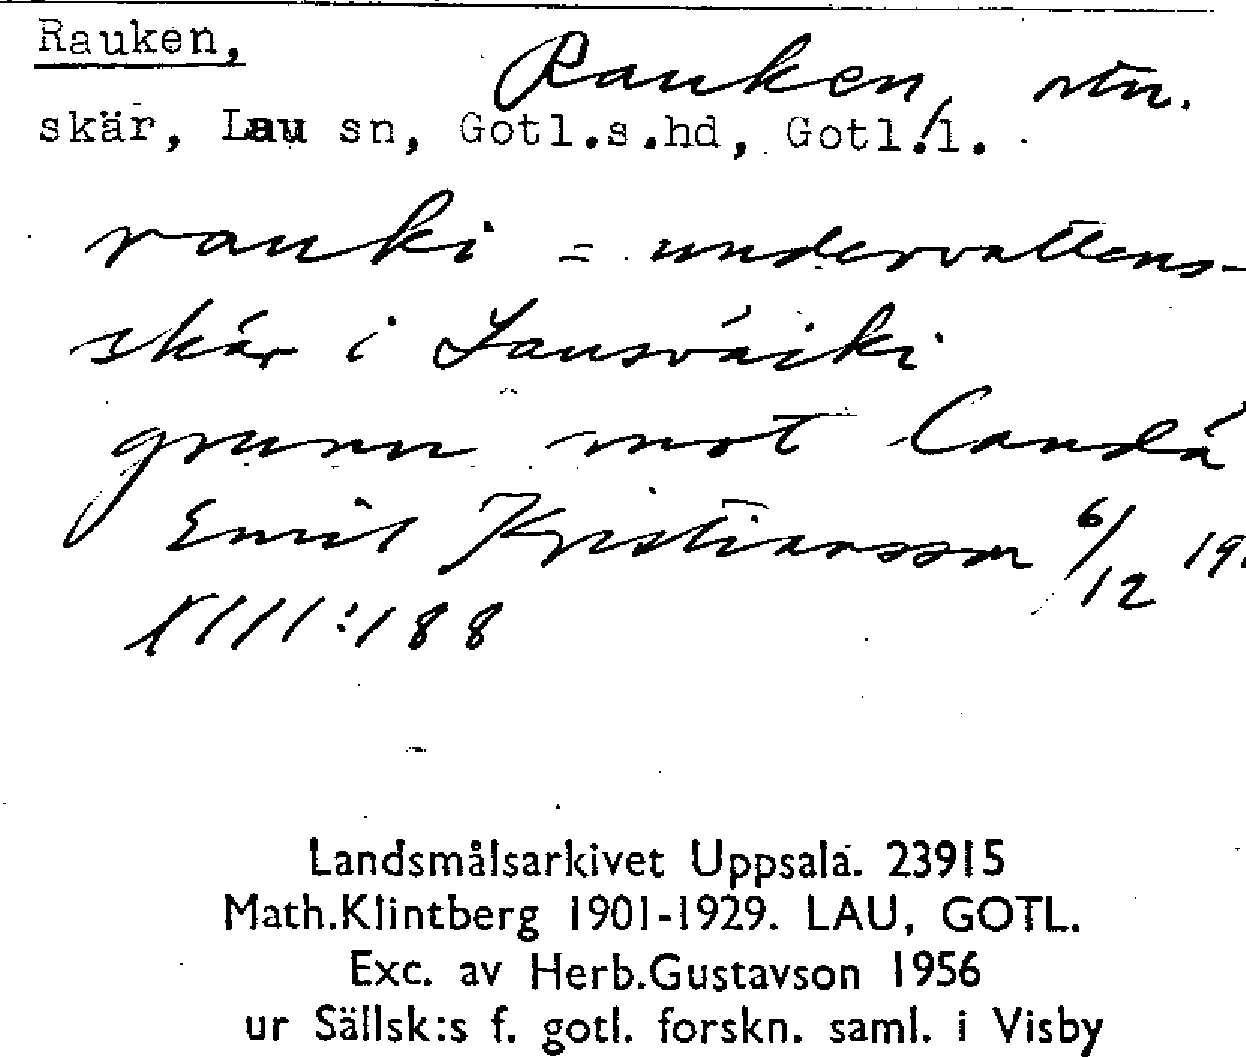 Rauken,
Rauken, otn.
skär, Lau sn, Gotl.s.hd, Gotl.l.
rauki = undervattens-
skär i Lausváiki
grunn mot
Emil Kristiansson 6/12 19
XIII:188
Landsmålsarkivet Uppsala. 23915
Math.Klintberg 1901-1929. LAU, GOTL.
Exc. av Herb.Gustavson 1956
ur Sällsk:s f. gotl. forskn. saml. i Visby